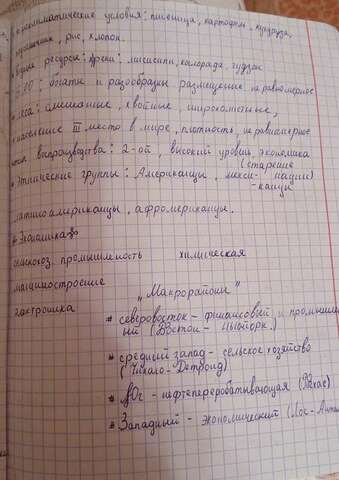 климатические условия: пшеница, картофель, кукуруза,
рис, хлопок.
ресурсы: реки: миссисипи, колорадо, гудзон
богаты и разообразны размещение не равномерное
леса: смешанные, хвойные широколистные,
население III место в мире, плотность, не равномерное
воспроизводства: 2-ой, высокий уровень экономика
(старение
* Этнические группы: Американцы, мекси- нации)
-канцы
латиноамериканцы, афромериканцы.
* Экономика
сельскохоз. промышленость химическая
машиностроение
"Макрорайоны"
* северовосток - финансовый и промышлен
ый (
* средний запад - сельское хозяйство
(Чикаго - Детроид)
* Юг - нефтеперерабатывающая (Техас)
* Западный - экономический (Лос-Анже